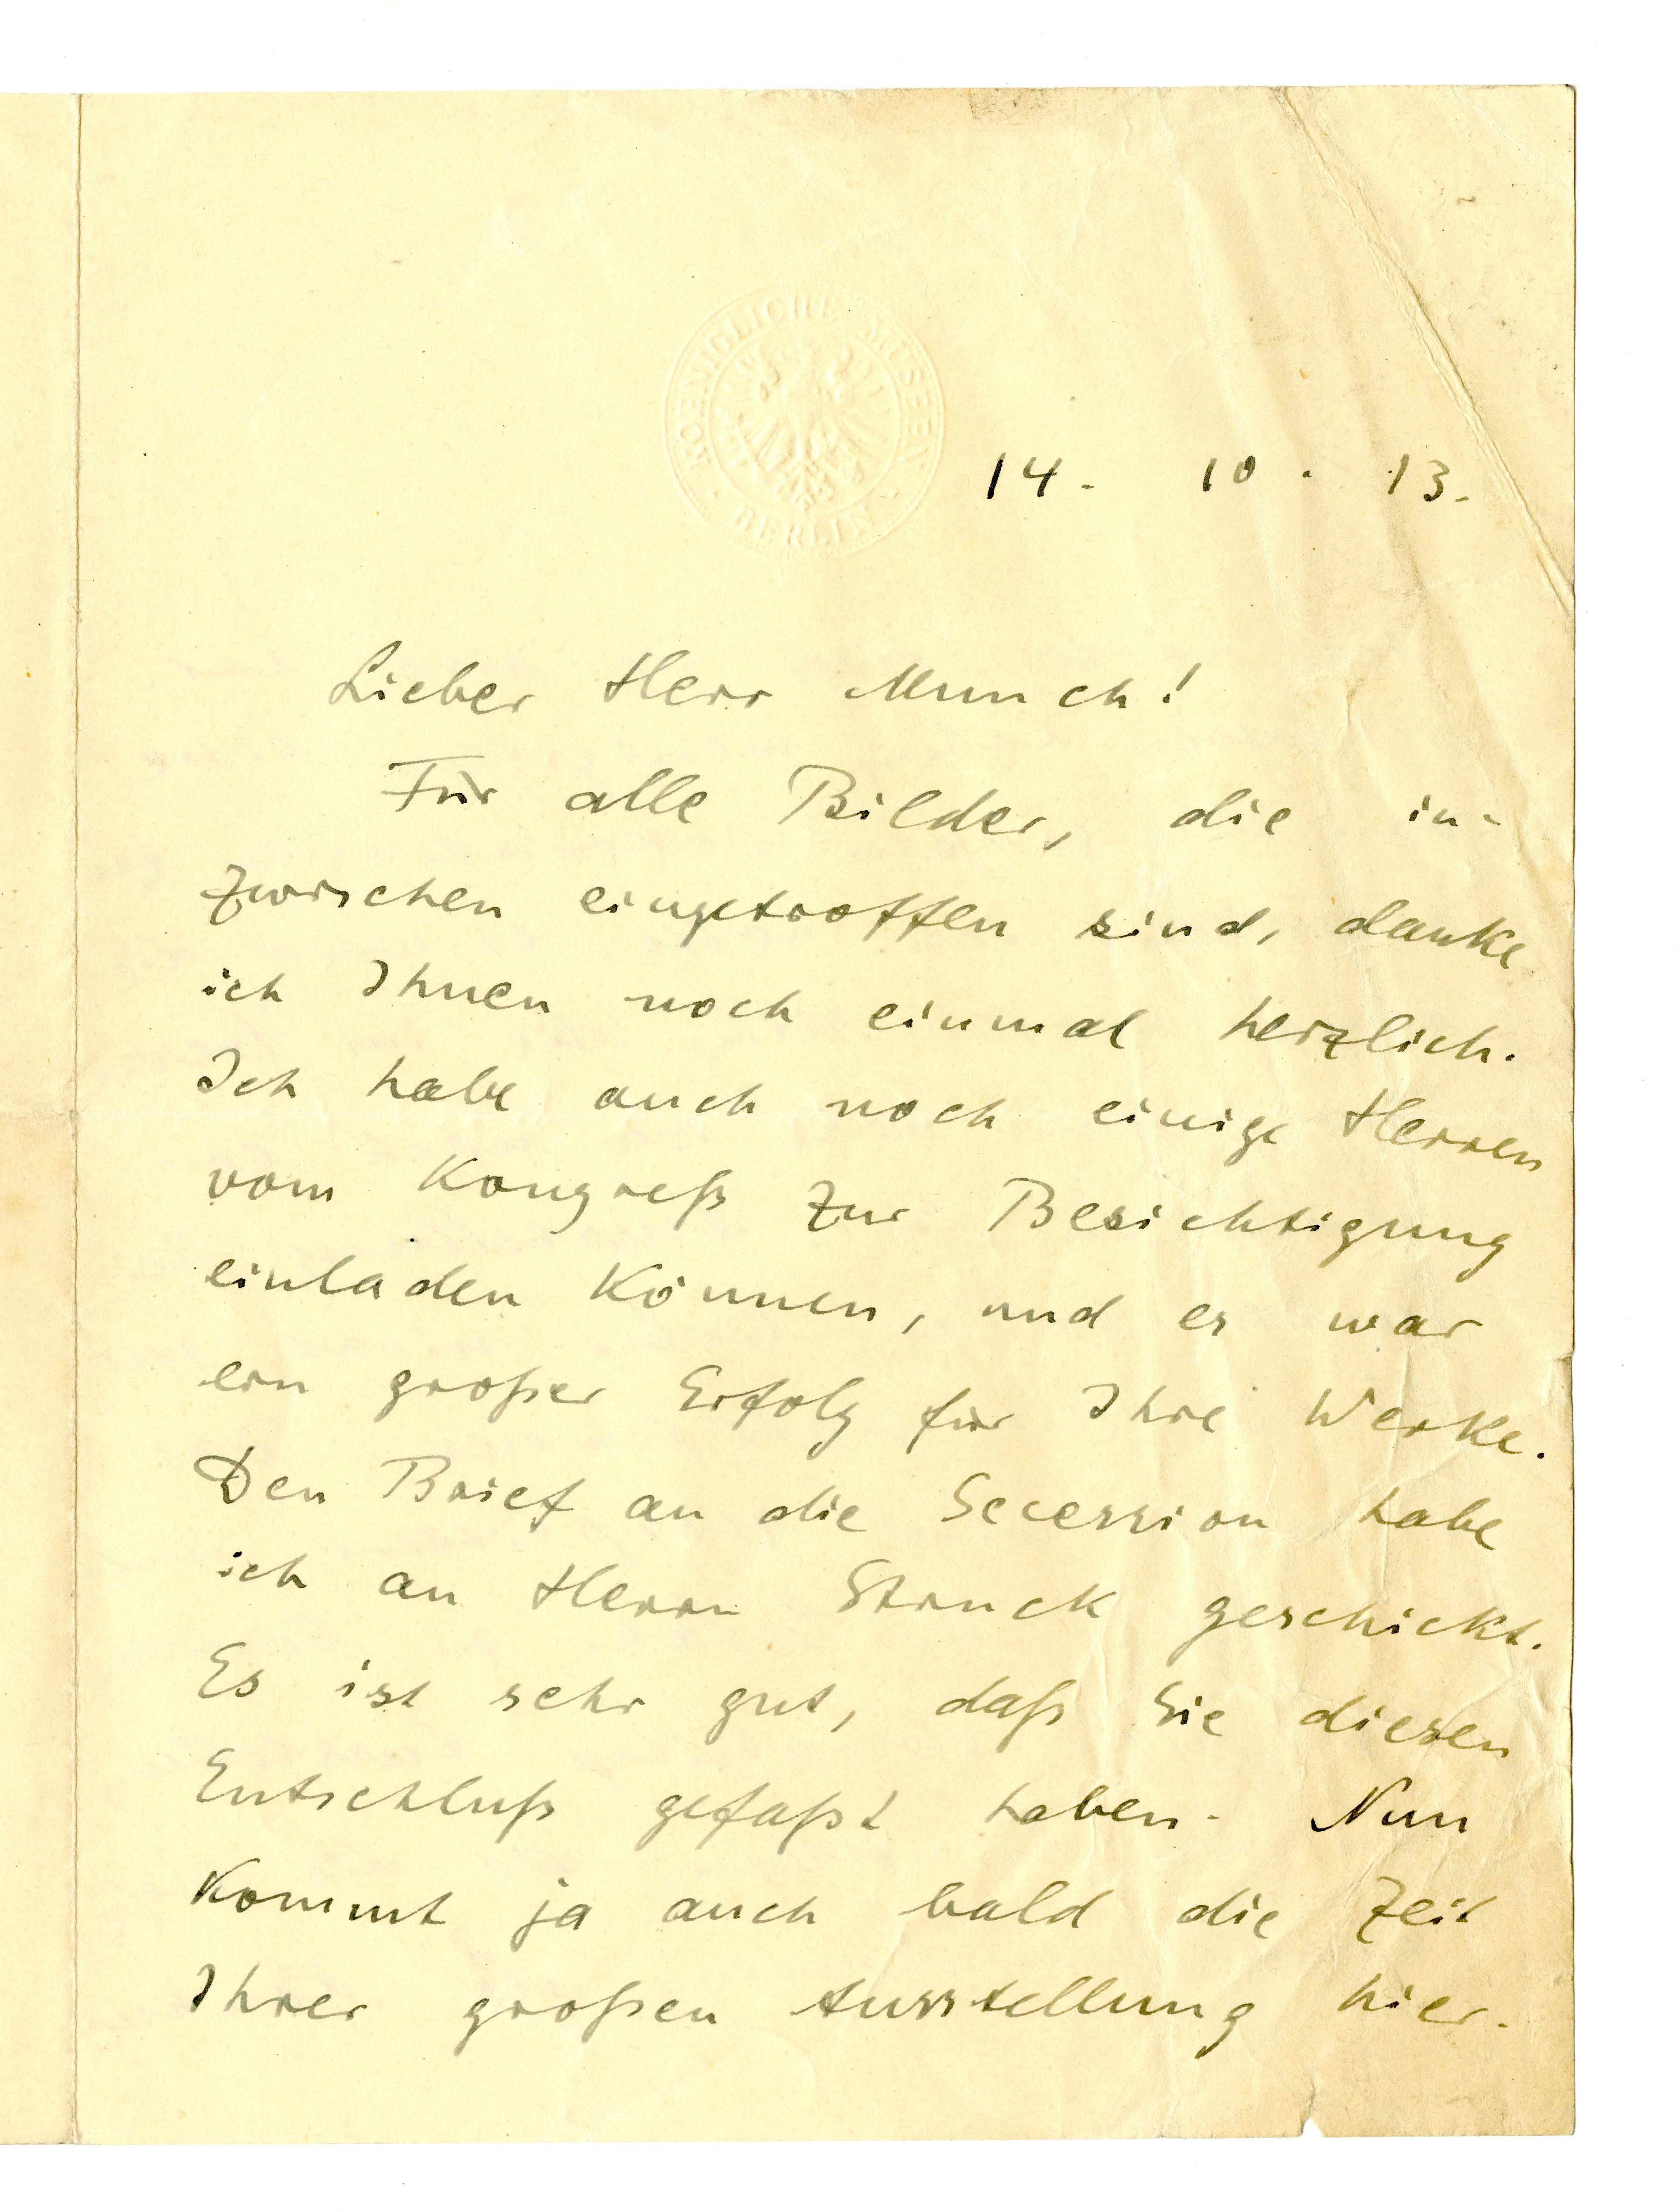 KOENIGLICHE MUSEEN
BERLIN
14. 10. 13.
Lieber Herr Munch!
Für alle Bilder, die in-
zwischen eingetroffen sind, danke
ich Ihnen noch einmal herzlich.
Ich habe auch noch einige Herren
vom Kongreß zur Besichtigung
einladen können, und es war
ein großer Erfolg für Ihre Werke.
Den Brief an die Secession habe
ich an Herrn Struck geschickt.
Es ist sehr gut, daß Sie diesen
Entschluß gefaßt haben. Nun
kommt ja auch bald die Zeit
Ihrer großen Ausstellung hier.